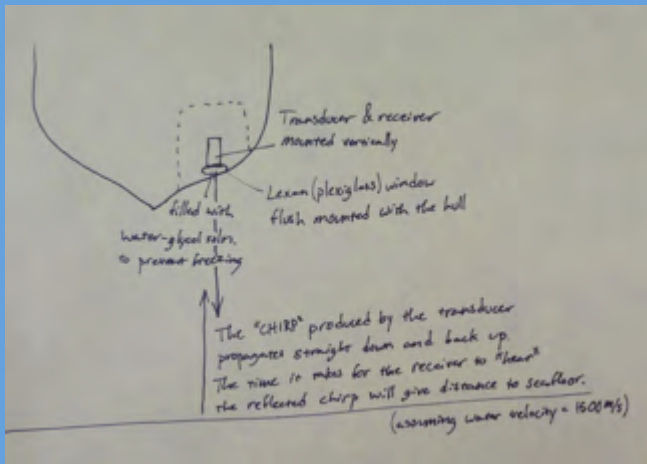 Transducer & receiver
mounted vertically
Lexan (plexiglass) window
flush mounted with the hull
filled with
water-glycol soln.
to prevent freezing
The "CHIRP" produced by the transducer
propagates straight down and back up.
The time it takes for the receiver to "hear"
the reflected chirp will give distance to seafloor.
(assuming water velocity = 1500 m/s)